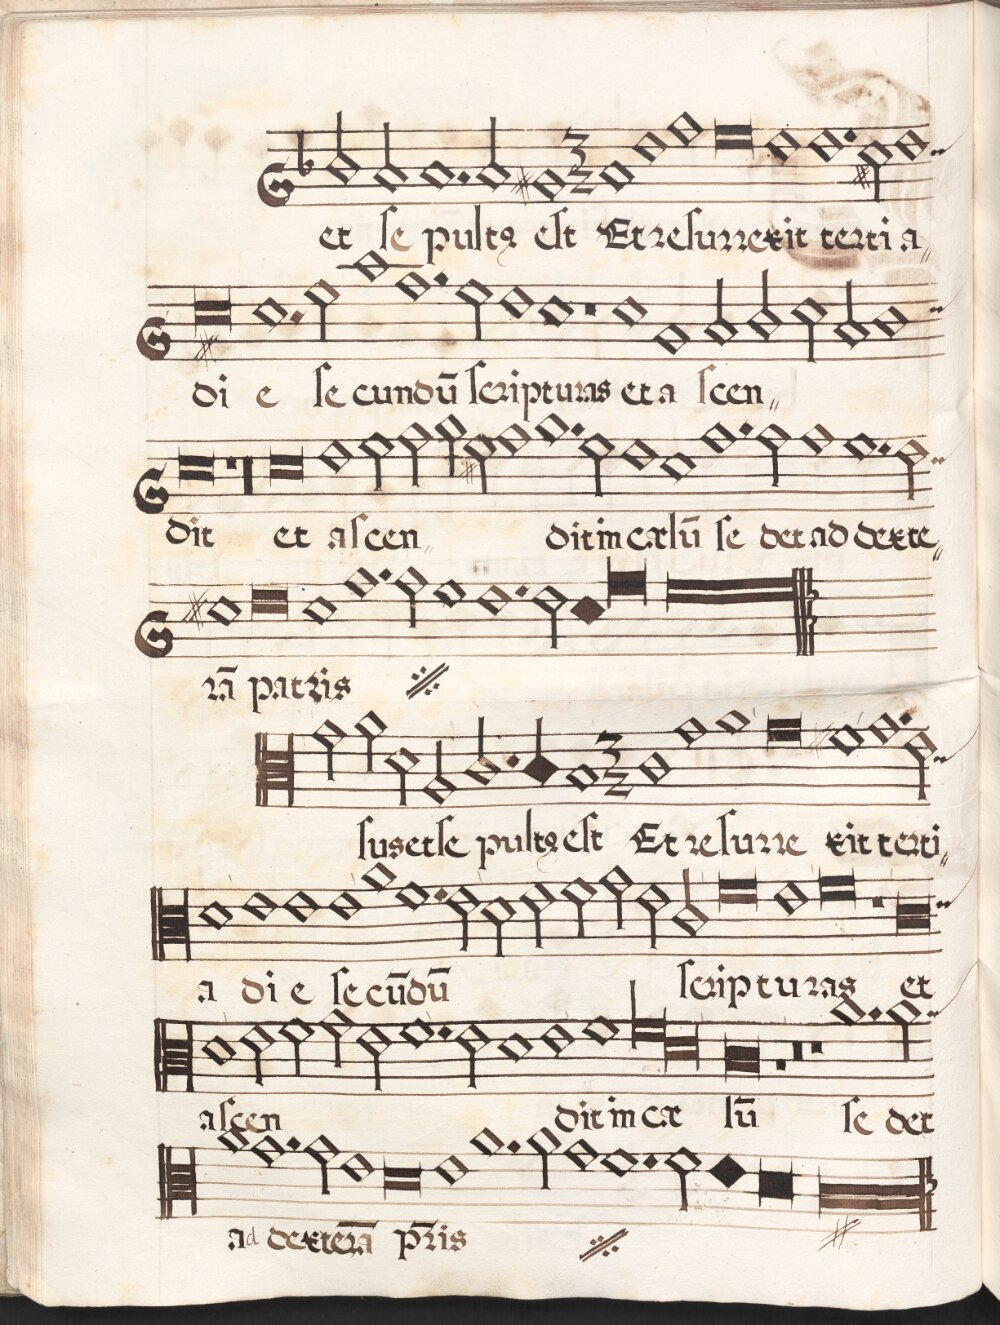 et se pultꝰ est Et resurrexit terti a,,
di e se cundū scripturas et a scen,,
dit et ascen,, dit in cælū se det ad dexte,,
rā patris
sus et se pultꝰ est Et resurre xit terti,,
a di e se cūdū scripturas et
ascen dit in cæ lū se det
ad dexterā pr̄is